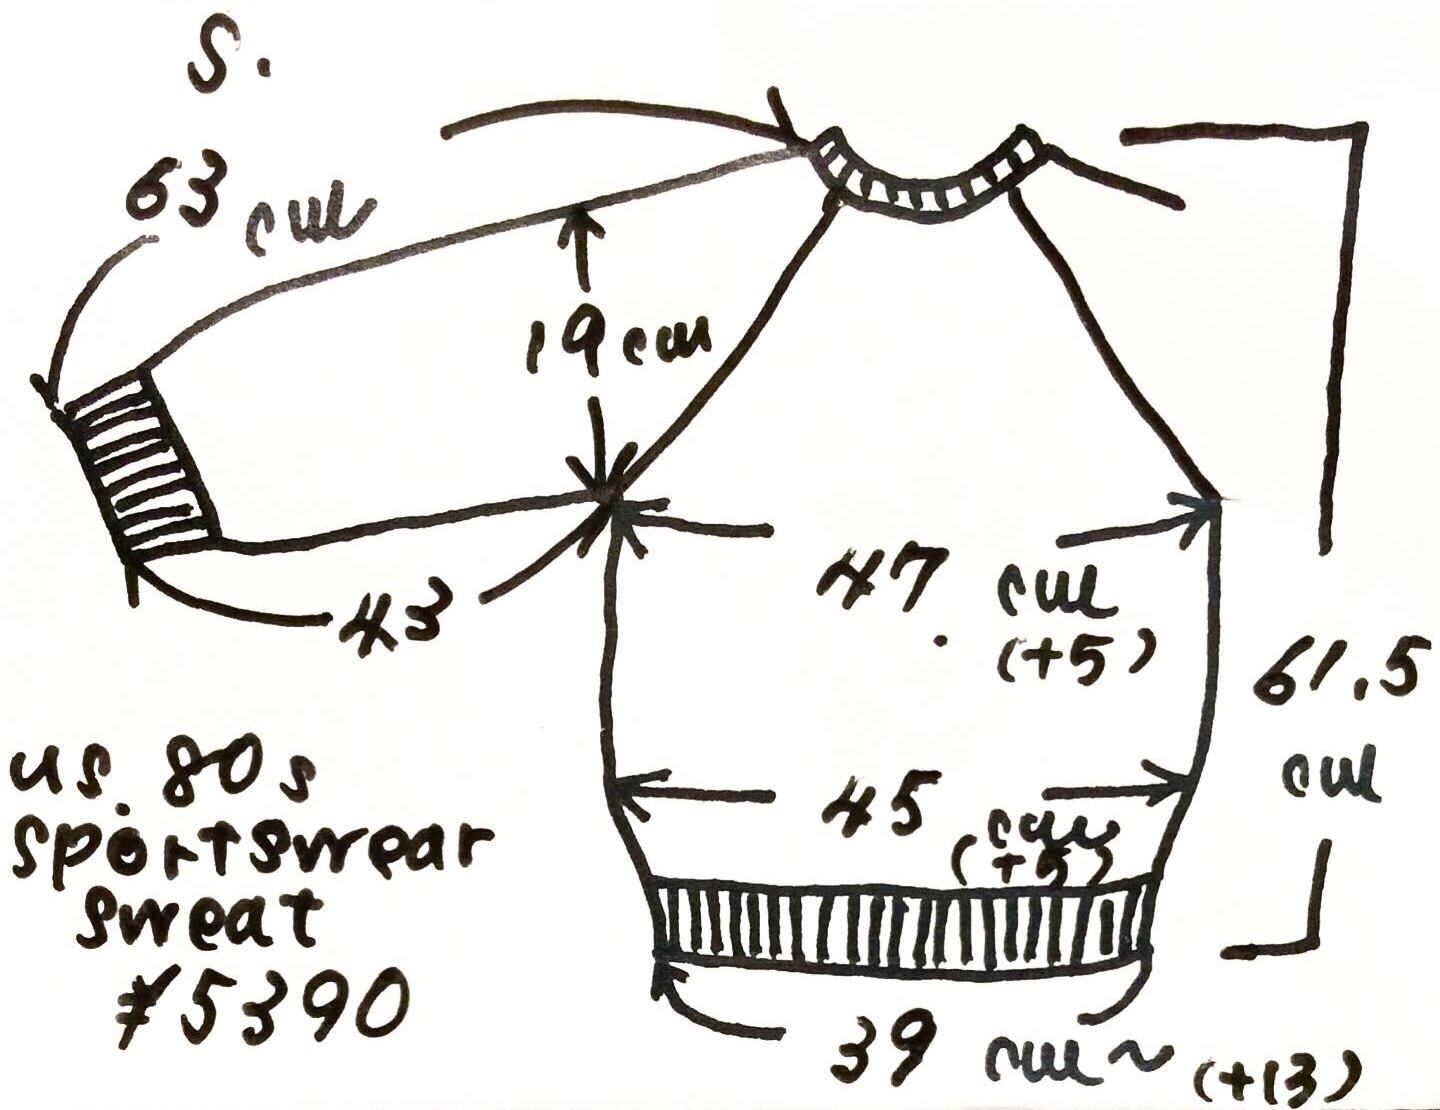 S.
63 cm
19 cm
47 cm
(+5)
43
61.5
cm
us. 80s
sportswear
sweat
¥5390
45 cm
(+5)
39 cm~ (+13)